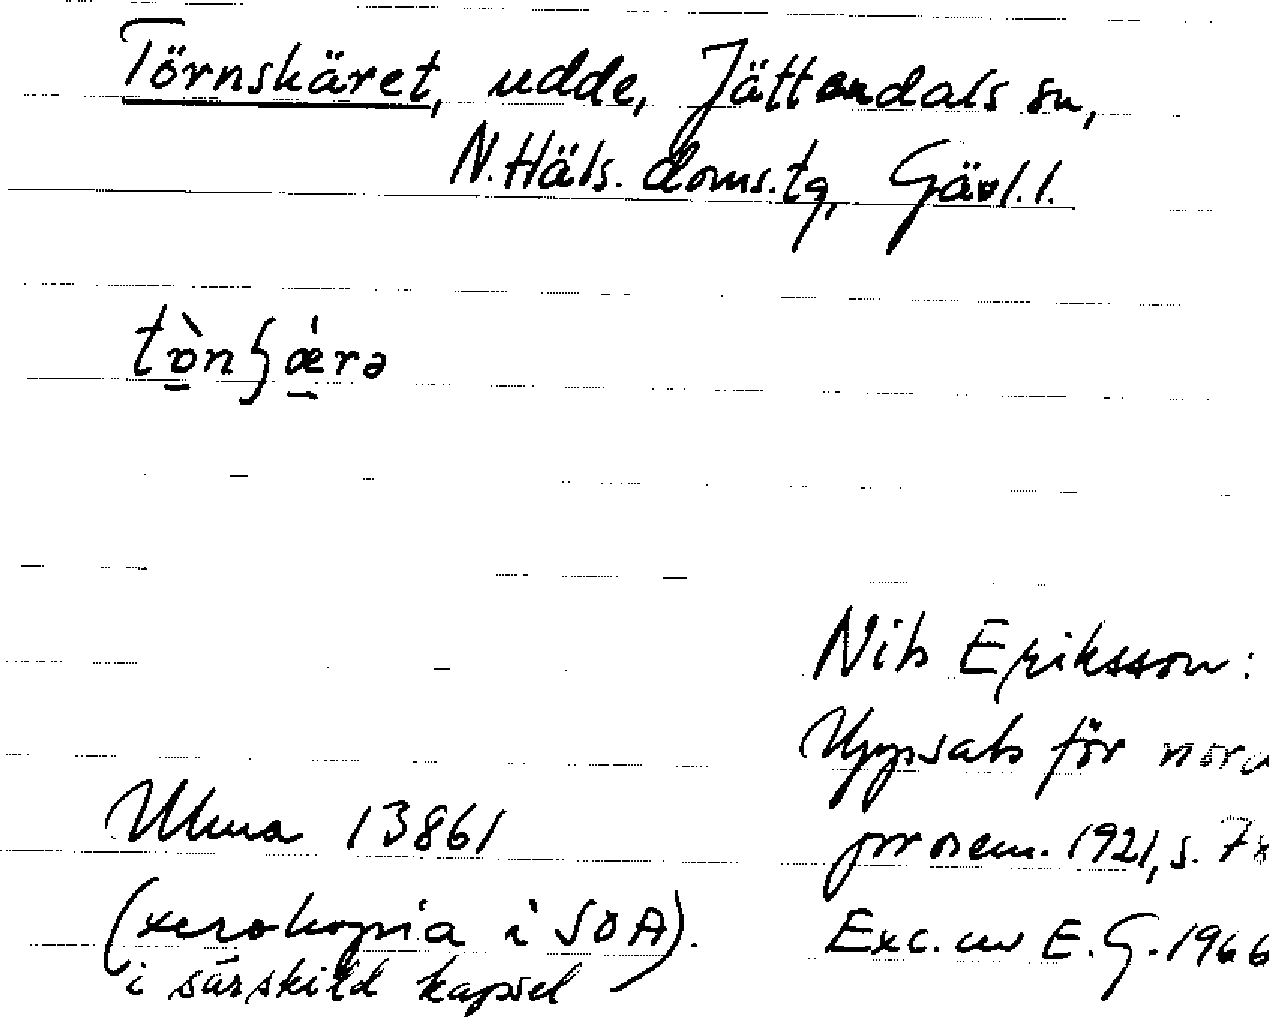 Törnskäret, udde, Jättendals sn,
N. Häls. doms.tg, Gävl.l.
tɒ̀nʃæ̀rə
Nils Eriksson:
Uppsats för nord
prosem. 1921, s.
Ulma 13861
(xerokopia i SOA).
i särskild kapsel
Exc. av E.G. 1966